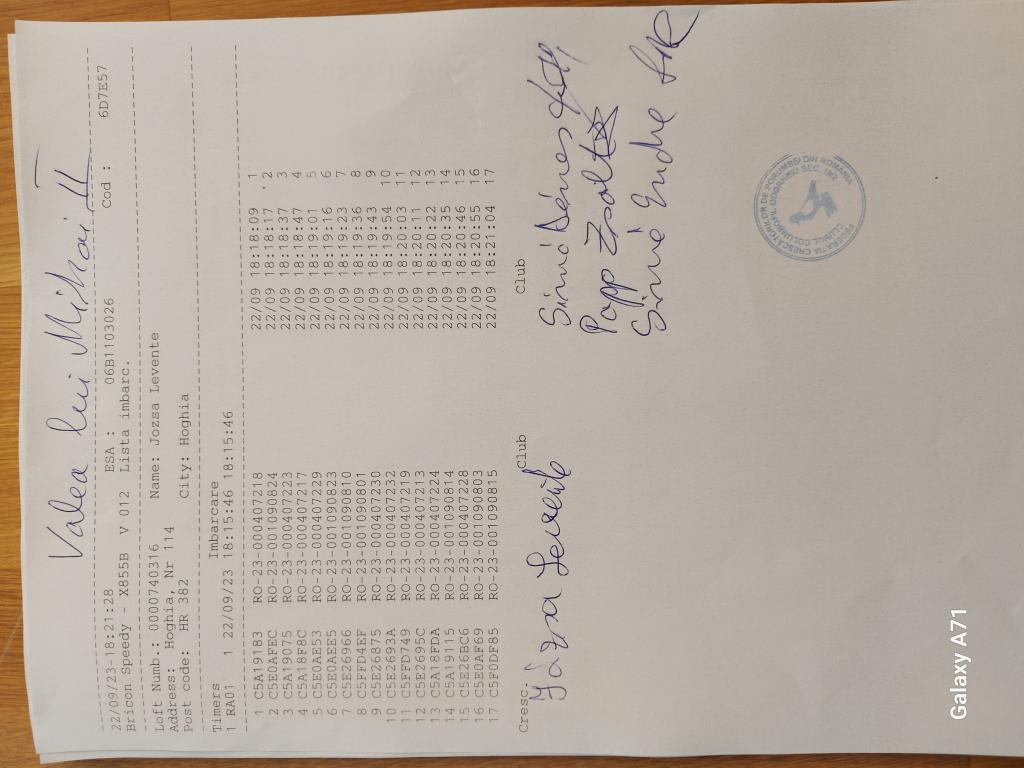 Valea lui Mihai II
22/09/23-18:21:28 ESA : 06B1103026 Cod : 6D7E57
Bricon Speedy - X855B V 012 Lista imbarc.
Loft Numb.: 0000740316 Name: Jozsa Levente
Address: Hoghia, Nr 114
Post code: HR 382 City: Hoghia
Timers Imbarcare
1 RA01 1 22/09/23 18:15:46 18:15:46
1 C5A19183 RO-23-000407218 22/09 18:18:09 1
2 C5E0AFEC RO-23-001090824 22/09 18:18:17 2
3 C5A19075 RO-23-000407223 22/09 18:18:37 3
4 C5A18F8C RO-23-000407217 22/09 18:18:47 4
5 C5E0AE53 RO-23-000407229 22/09 18:19:01 5
6 C5E0AEE5 RO-23-001090823 22/09 18:19:16 6
7 C5E26966 RO-23-001090810 22/09 18:19:23 7
8 C5FFD4EF RO-23-001090801 22/09 18:19:36 8
9 C5E26875 RO-23-000407230 22/09 18:19:43 9
10 C5E2693A RO-23-000407232 22/09 18:19:54 10
11 C5FFD749 RO-23-000407219 22/09 18:20:03 11
12 C5E2695C RO-23-000407213 22/09 18:20:11 12
13 C5A18FDA RO-23-000407224 22/09 18:20:22 13
14 C5A19115 RO-23-001090814 22/09 18:20:35 14
15 C5E26BC6 RO-23-000407228 22/09 18:20:46 15
16 C5E0AF69 RO-23-001090803 22/09 18:20:55 16
17 C5F0DF85 RO-23-001090815 22/09 18:21:04 17
Cresc. Club Club
Józsa Levente
Simó Dénes
Papp Zsolt
Simó Endre
FEDERATIA CRESCĂTORILOR DE PORUMBEI DIN ROMANIA
CLUBUL COLUMBOFIL ODORHEIU SEC.
Galaxy A71